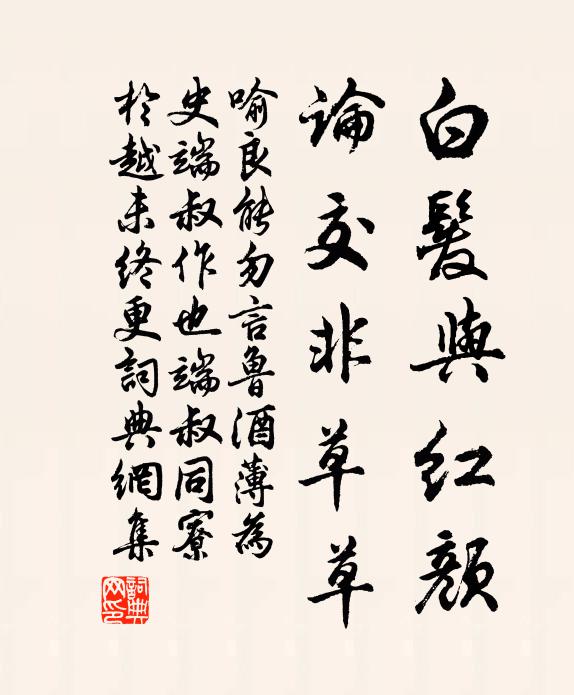 白髮與红顏
論交非草草
喻良能勿言魯酒薄為
史端叔作也端叔同寮
於越未终更詞典網集
詞典网印